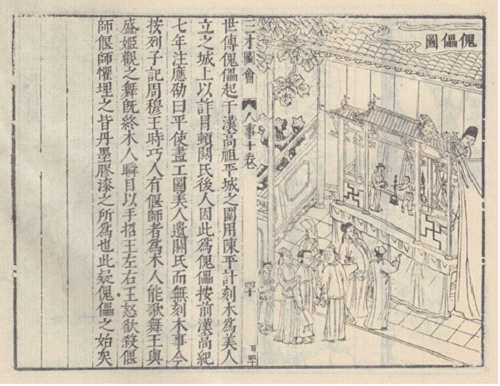 傀儡圖
三才圖會 人事十卷 四十
世傳傀儡起于漢高祖平城之圍用陳平計刻木爲美人
立之城上以詐冒頓閼氏後人因此爲傀儡按前漢高紀
七年注應劭曰平使畫工圖美人遺閼氏而無刻木事今
按列子記周穆王時巧人有偃師者爲木人能歌舞王與
盛姬觀之舞既終木人瞬目以手招王左右王怒欲殺偃
師偃師懼之皆丹墨膠漆之所爲也此疑傀儡之始矣